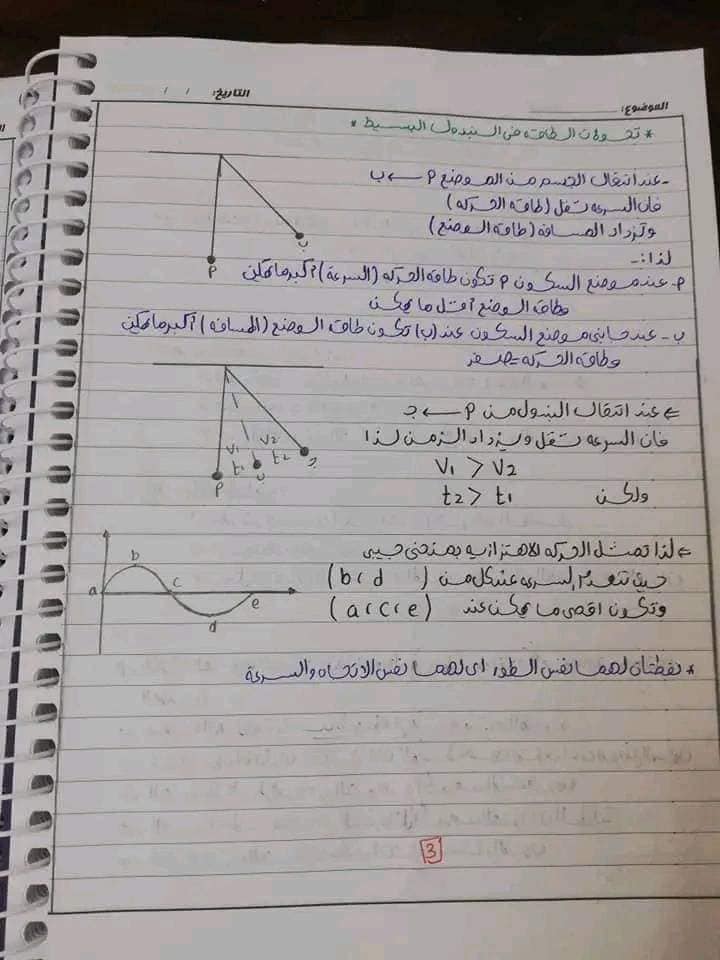 الموضوع:
التاريخ: / /
* تحولات الطاقه فى البندول البسيط *
- عند انتقال الجسم من الموضع P ← ب
فان السرعه تقل (طاقه الحركه)
وتزداد المسافه (طاقه الوضع)
لذا :-
P- عند موضع السكون P تكون طاقه الحركه (السرعة) أكبر ما يمكن
وطاقه الوضع أقل ما يمكن
ب - عند جانبى موضع السكون عند (ب) تكون طاقه الوضع (المسافه) أكبر ما يمكن
وطاقه الحركه = صفر
P
ب
⇐ عند انتقال البندول من P ← جـ
فان السرعه تقل ويزداد الزمن لذا
V1 > V2
ولكن t2 > t1
V1 V2
t1 t2
P ب جـ
⇐ لذا تمثل الحركه الاهتزازيه بمنحنى جيبى
حيث تنعدم السرعه عند كل من (b , d)
وتكون اقصى ما يمكن عند (a , c , e)
a b c d e
* نقطتان لهما نفس الطور اى لهما نفس الاتجاه والسرعة
3